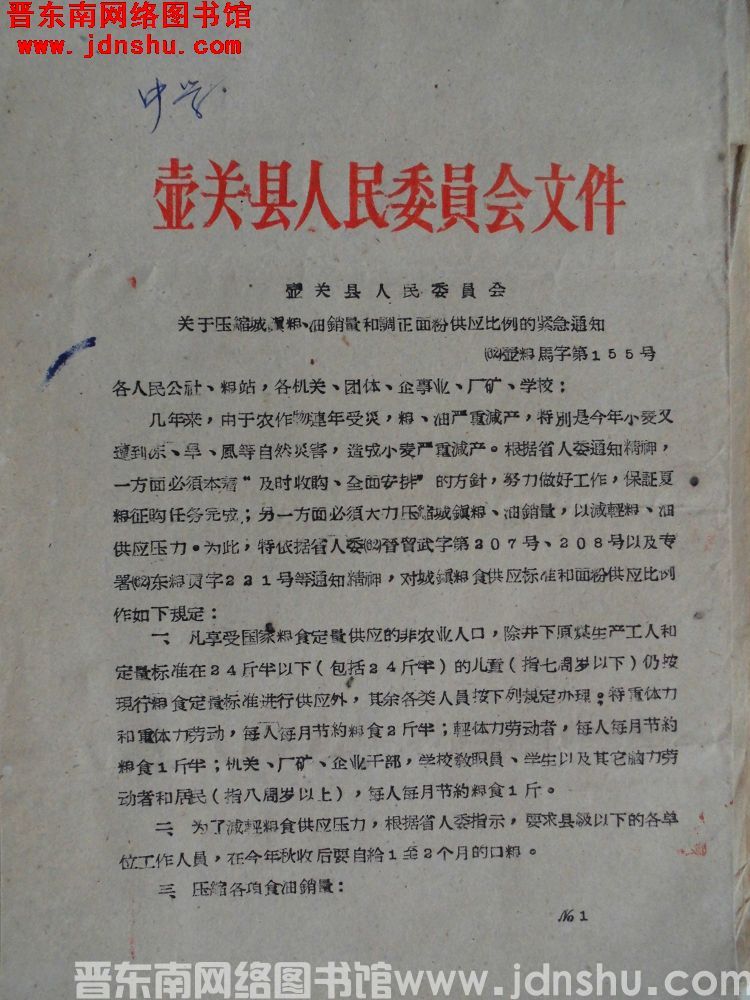 晋东南网络图书馆
www.jdnshu.com
中学
壶关县人民委員会文件
壶关县人民委員会
关于压縮城鎮粮、油銷量和調正面粉供应比例的紧急通知
(62)壶粮馬字第155号
各人民公社、粮站，各机关、团体、企事业、厂矿、学校：
几年来，由于农作物連年受災，粮、油严重減产，特別是今年小麦又
遭到冻、旱、風等自然災害，造成小麦严重減产。根据省人委通知精神，
一方面必須本着“及时收购、全面安排”的方針，努力做好工作，保証夏
粮征购任务完成；另一方面必須大力压縮城鎮粮、油銷量，以減輕粮、油
供应压力。为此，特依据省人委(62)晉貿武字第207号、208号以及专
署(62)东粮贾字221号等通知精神，对城鎮粮食供应标准和面粉供应比例
作如下規定：
一、凡享受国家粮食定量供应的非农业人口，除井下原煤生产工人和
定量标准在24斤半以下（包括24斤半）的儿童（指七周岁以下）仍按
現行粮食定量标准进行供应外，其余各类人員按下列規定办理：特重体力
和重体力劳动，每人每月节約粮食2斤半；輕体力劳动者，每人每月节約
粮食1斤半；机关、厂矿、企业干部，学校敎职員、学生以及其它腦力劳
动者和居民（指八周岁以上），每人每月节約粮食1斤。
二、为了減輕粮食供应压力，根据省人委指示，要求县級以下的各单
位工作人員，在今年秋收后要自給1至2个月的口粮。
三、压縮各項食油銷量：
№1
晋东南网络图书馆www.jdnshu.com